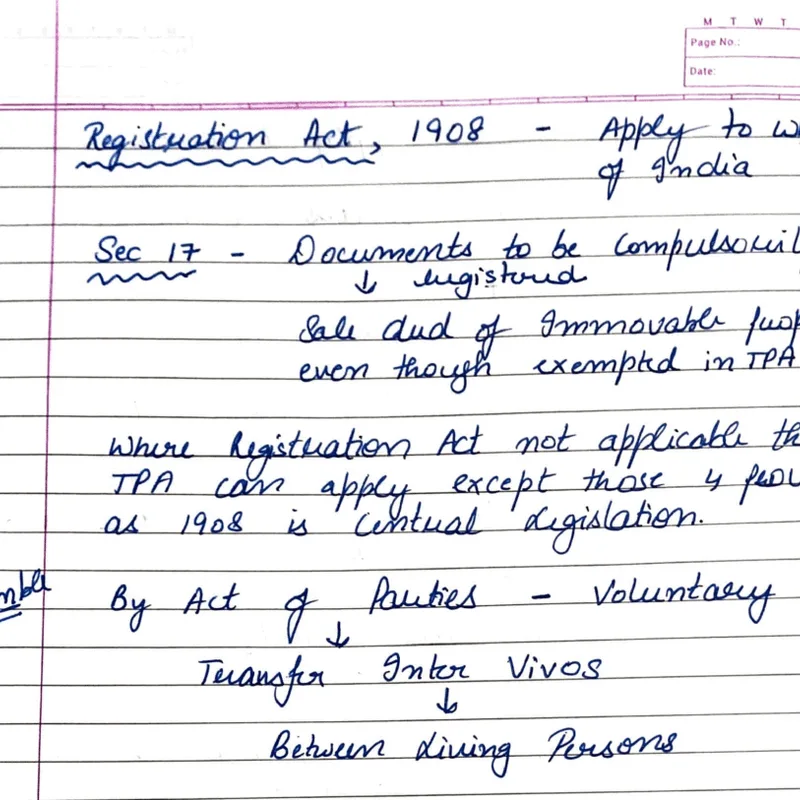 M T W T
Page No.:
Date:
Registration Act, 1908 - Apply to
of India
Sec 17 - Documents to be
↓ registered
Sale deed of Immovable
even though exempted in TPA
Where Registration Act not applicable
TPA can apply except those 4
as 1908 is Central Legislation.
By Act of Parties - Voluntary
↓
Transfer Inter Vivos
↓
Between Living Persons